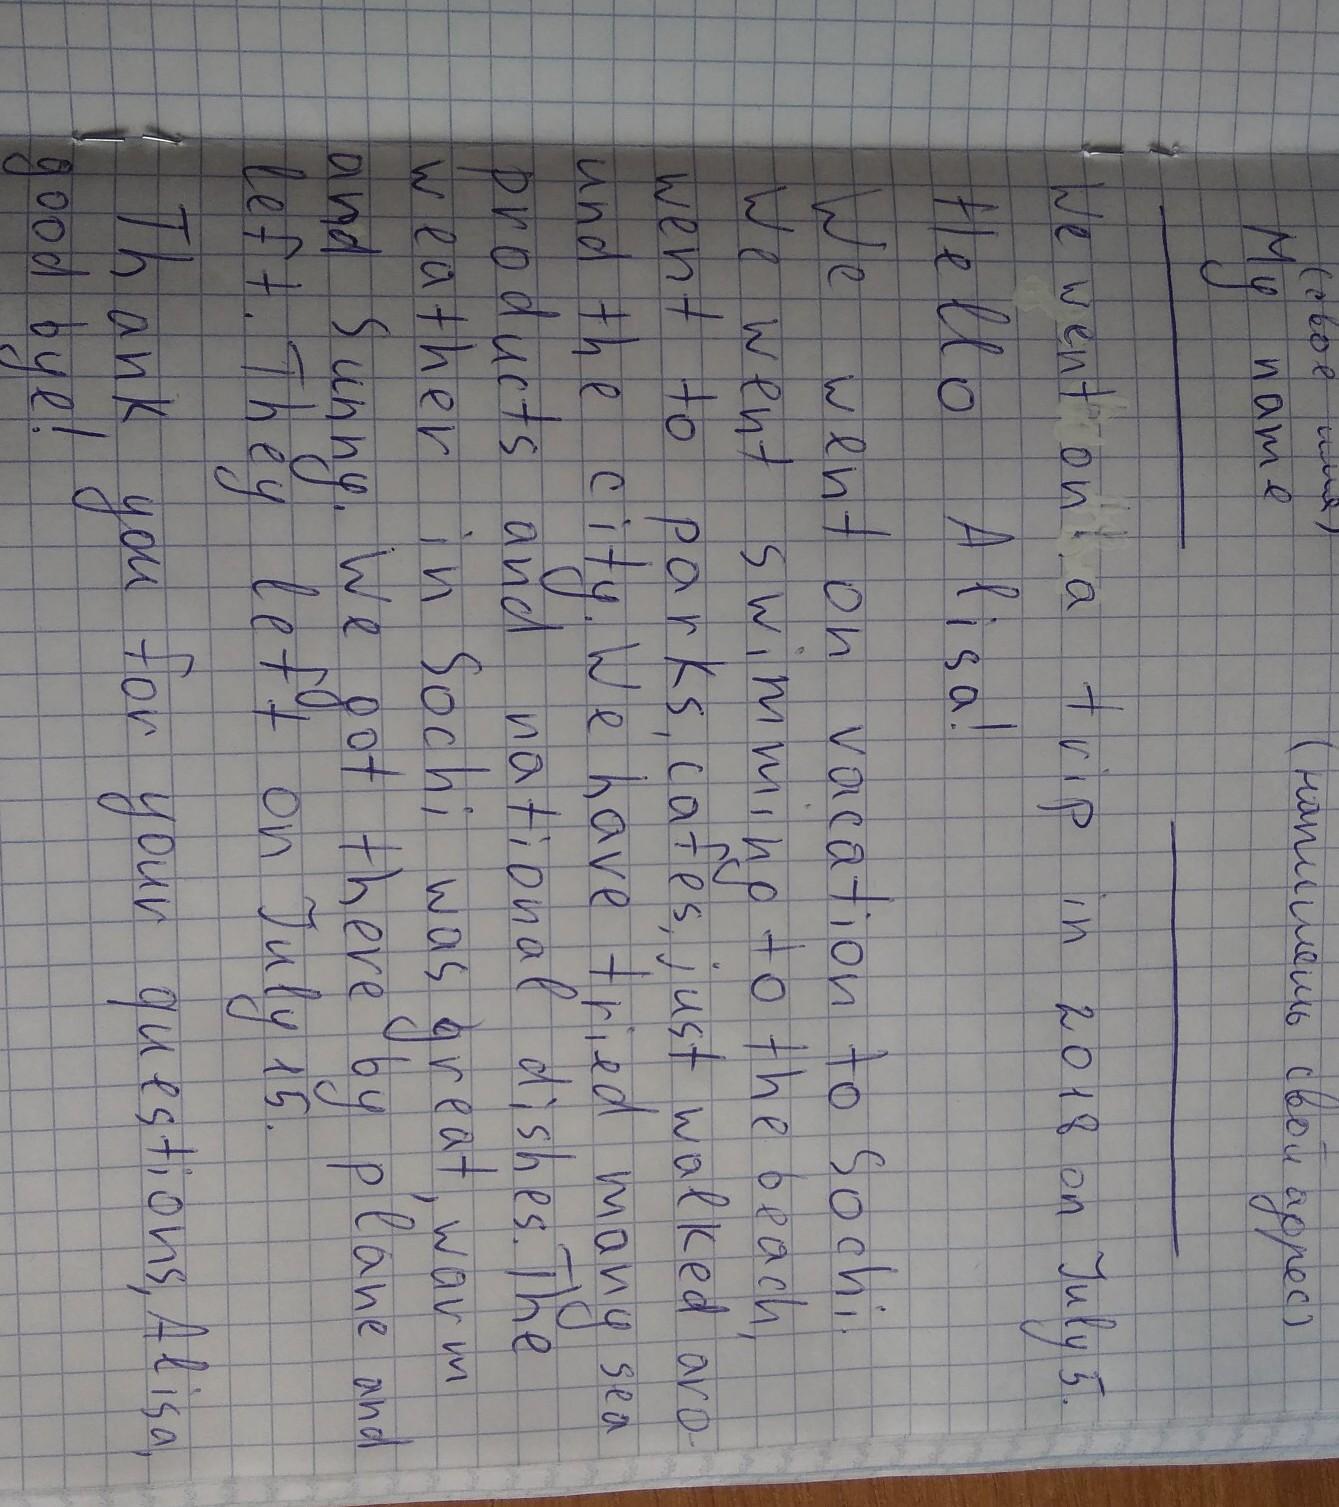 (свое имя) (напишешь свой адрес)
My name
We went on a trip in 2018 on July 5.
Hello Alisa!
We went on vacation to Sochi.
We went swimming to the beach,
went to parks, cafes, just walked aro-
und the city. We have tried many sea
products and national dishes. The
weather in Sochi was great, warm
and Sunny. We got there by plane and
left. They left on July 15.
Thank you for your questions, Alisa,
good bye!